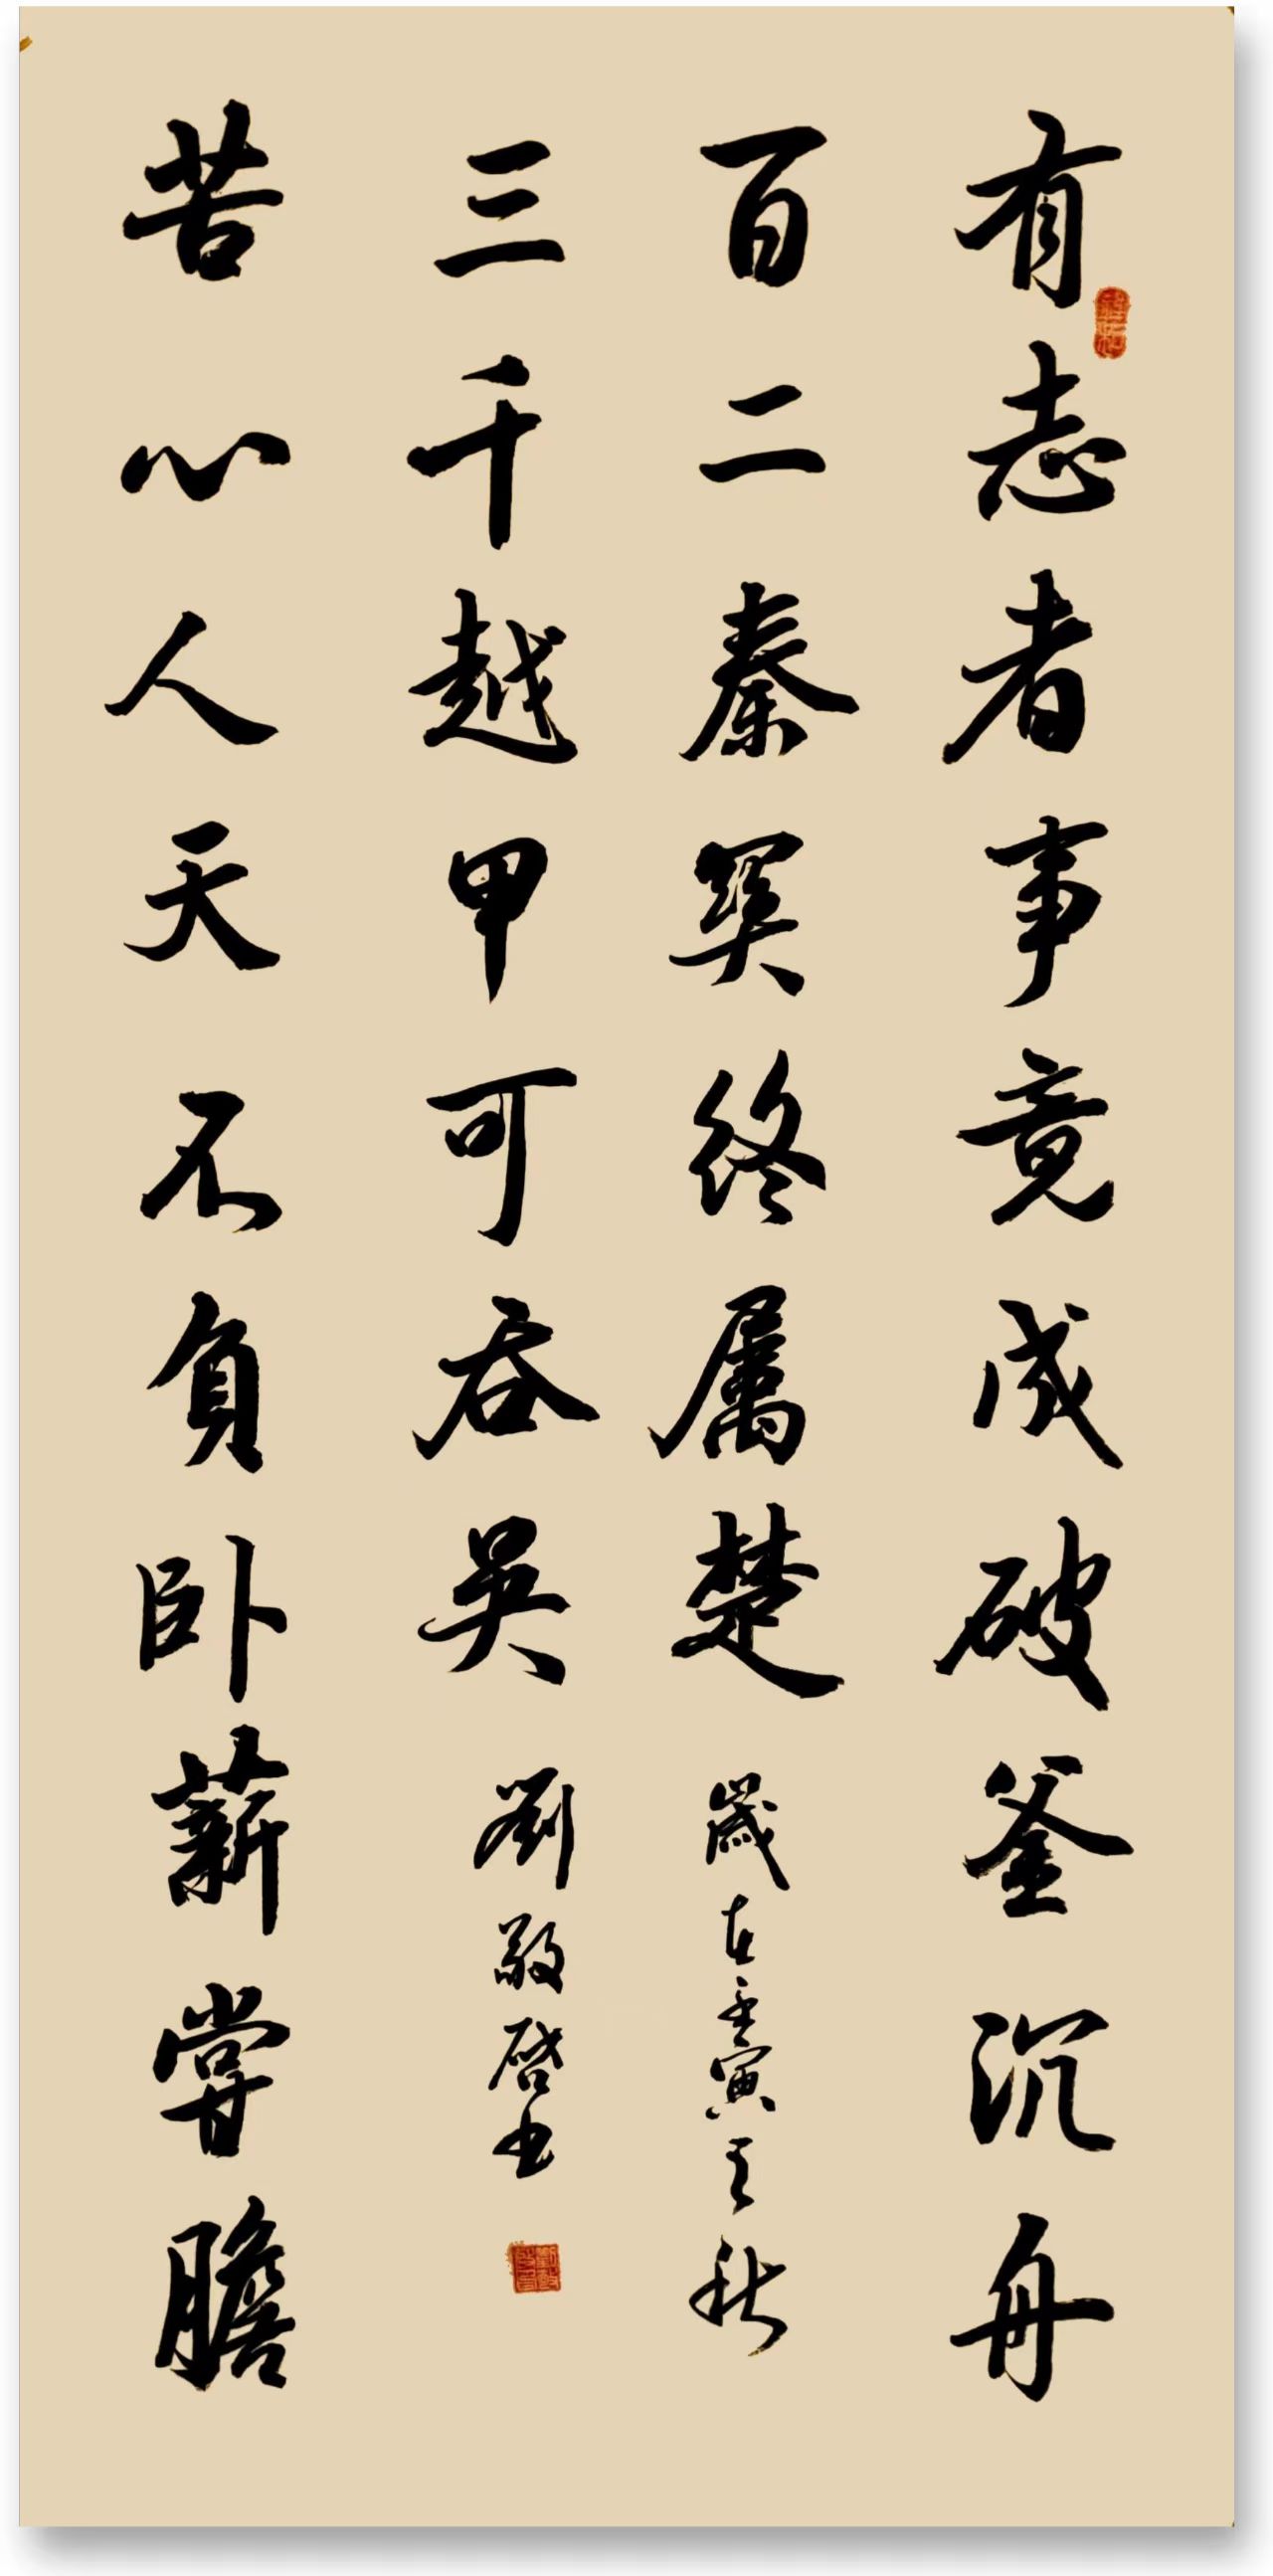 有志者事竟成破釜沉舟
百二秦關終屬楚
歲在壬寅之秋
苦心人天不負卧薪甞膽
三千越甲可吞吳
劉敬啓书